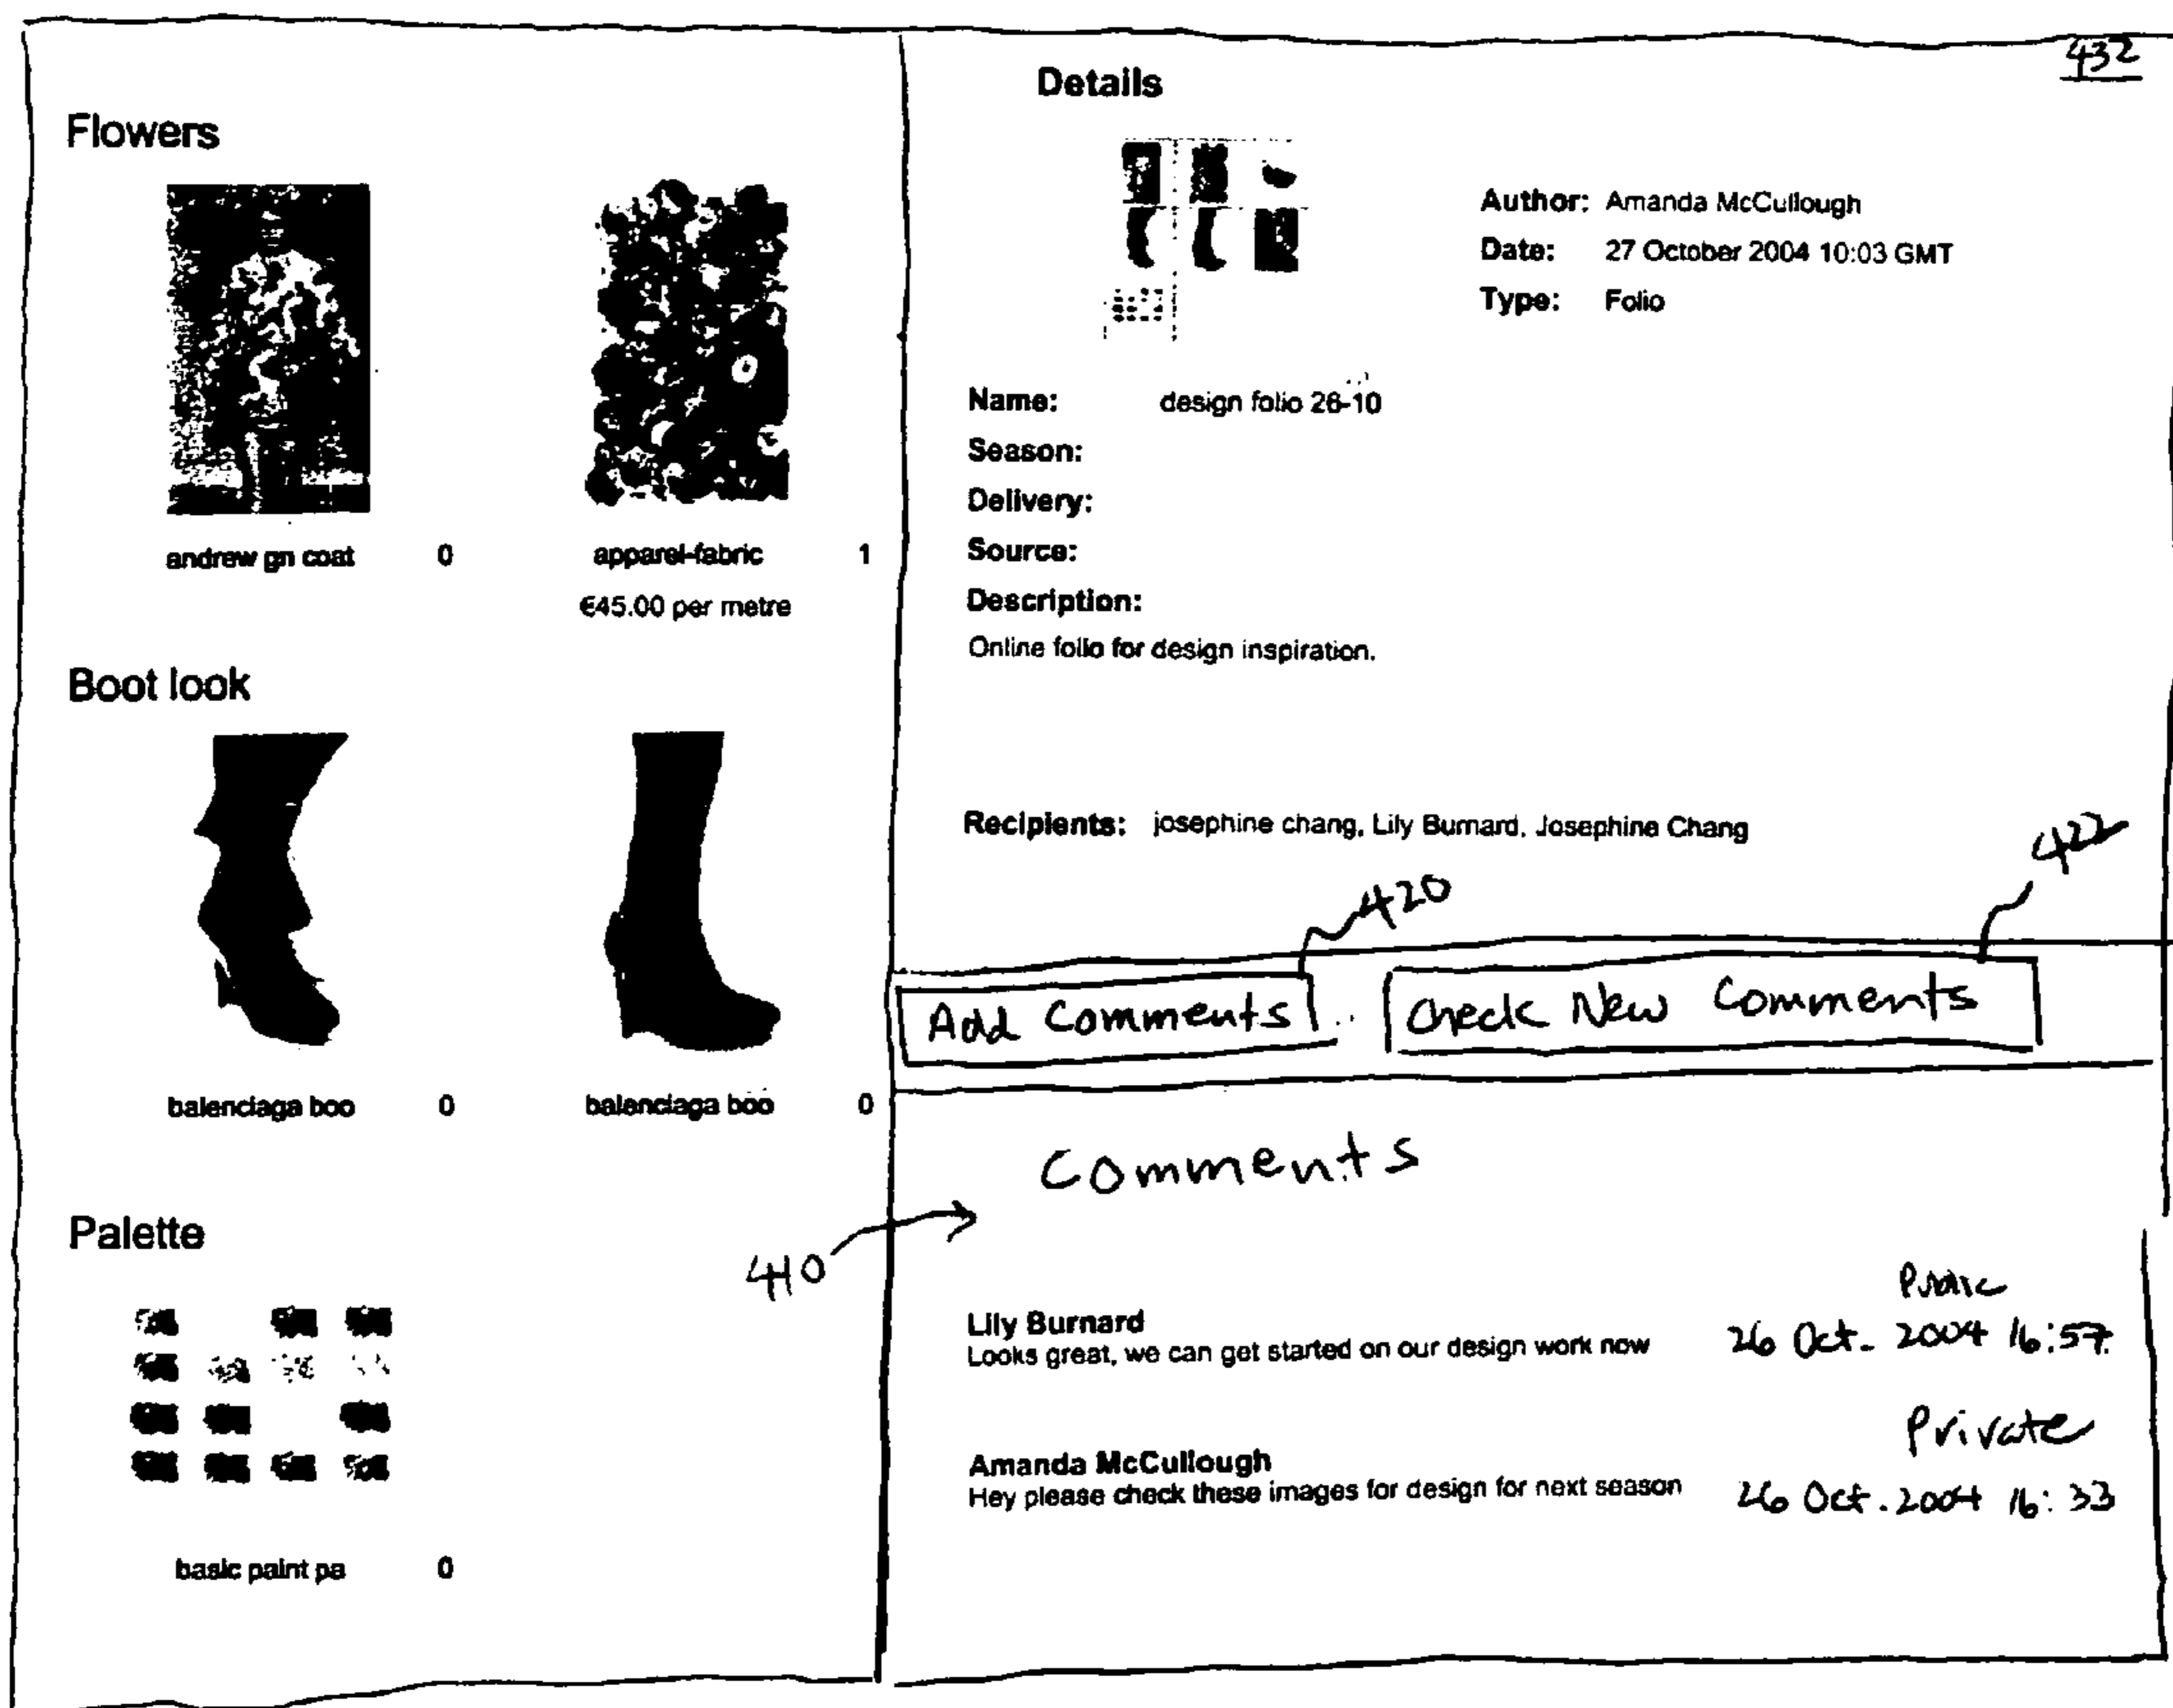 Flowers
andrew gn coat 0
apparel-fabric 1
€45.00 per metre
Boot look
balenciaga boo 0
balenciaga boo 0
Palette
basic paint pa 0
432
Details
Author: Amanda McCullough
Date: 27 October 2004 10:03 GMT
Type: Folio
Name: design folio 26-10
Season:
Delivery:
Source:
Description:
Online folio for design inspiration.
Recipients: josephine chang, Lily Burnard, Josephine Chang
420
422
Add Comments
Check New Comments
Comments
410
Public
Lily Burnard
Looks great, we can get started on our design work now 26 Oct. 2004 16:57
Private
Amanda McCullough
Hey please check these images for design for next season 26 Oct. 2004 16:33